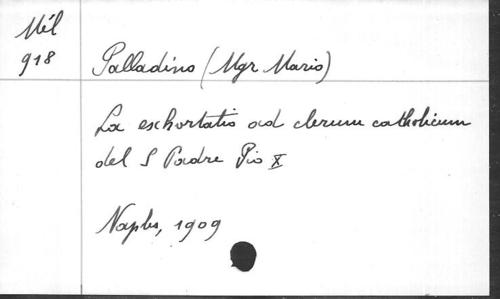 Mél
918
Palladino (Mgr Mario)
La exhortatio ad clerum catholicum
del S Padre Pio X
Naples, 1909